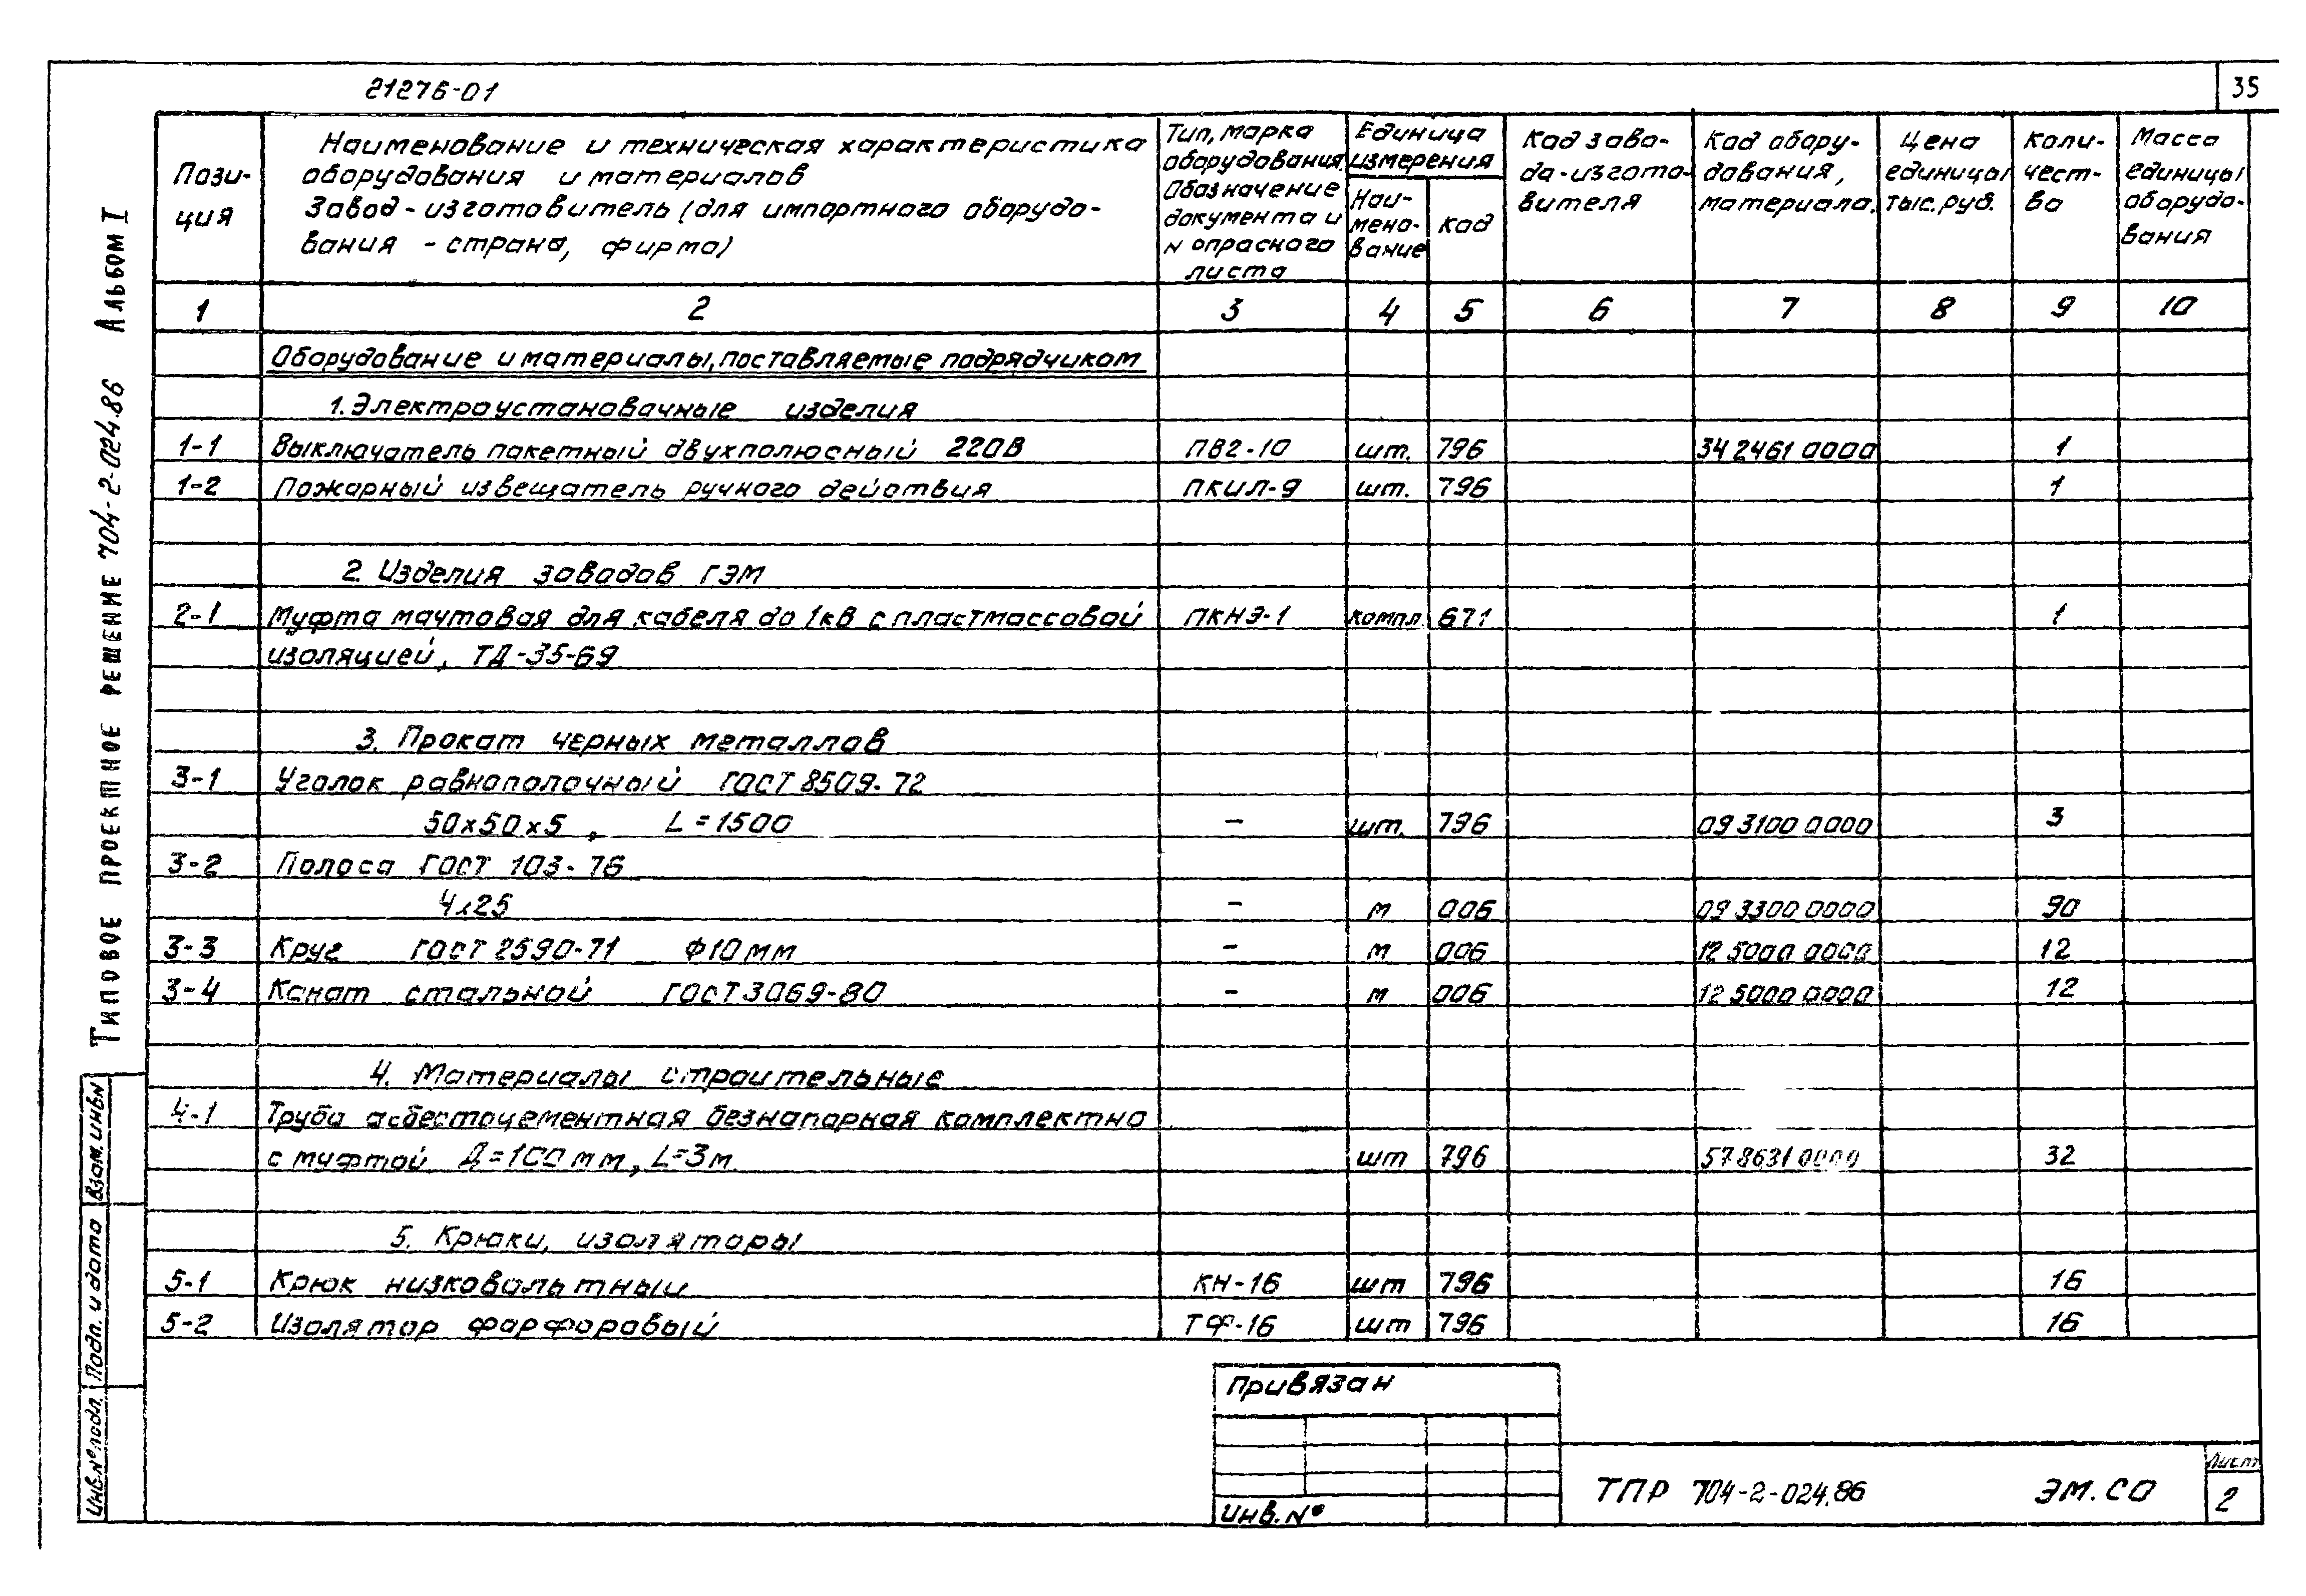 21276-01
35
Пози-
ция
Наименование и техническая характеристика
оборудования и материалов
Завод-изготовитель (для импортного оборудо-
вания - страна, фирма)
Тип, марка
оборудования.
Обозначение
документа и
N опросного
листа
Единица
измерения
Наи-
мено-
вание
Код
Код заво-
да-изгото-
вителя
Код обору-
дования,
материала.
Цена
единицы
тыс. руб.
Коли-
чест-
во
Масса
единицы
оборудо-
вания
1 2 3 4 5 6 7 8 9 10
Оборудование и материалы, поставляемые подрядчиком
1. Электроустановочные изделия
1-1 Выключатель пакетный двухполюсный 220В ПВ2-10 шт. 796 34 2461 0000 1
1-2 Пожарный извещатель ручного действия ПКИЛ-9 шт. 796 1
2. Изделия заводов ГЭМ
2-1 Муфта мачтовая для кабеля до 1кВ с пластмассовой ПКНЭ-1 компл 671 1
изоляцией, ТД-35-69
3. Прокат черных металлов
3-1 Уголок равнополочный ГОСТ 8509-72
50х50х5, L=1500 - шт. 796 09 3100 0000 3
3-2 Полоса ГОСТ 103-76
4х25 - м 006 09 3300 0000 90
3-3 Круг ГОСТ 2590-71 Ф10мм - м 006 12 5000 0000 12
3-4 Канат стальной ГОСТ 3069-80 - м 006 12 5000 0000 12
4. Материалы строительные
4-1 Труба асбестоцементная безнапорная комплектно
с муфтой Д=100мм, L=3м шт 796 57 8631 0000 32
5. Крюки, изоляторы
5-1 Крюк низковольтный КН-16 шт 796 16
5-2 Изолятор фарфоровый ТФ-16 шт 796 16
Привязан
Инв. №
ТПР 704-2-024.86
ЭМ.СО
Лист
2
Типовое проектное решение 704-2-024.86 Альбом I
Взам. инв N
Подп. и дата
Инв. № подл.